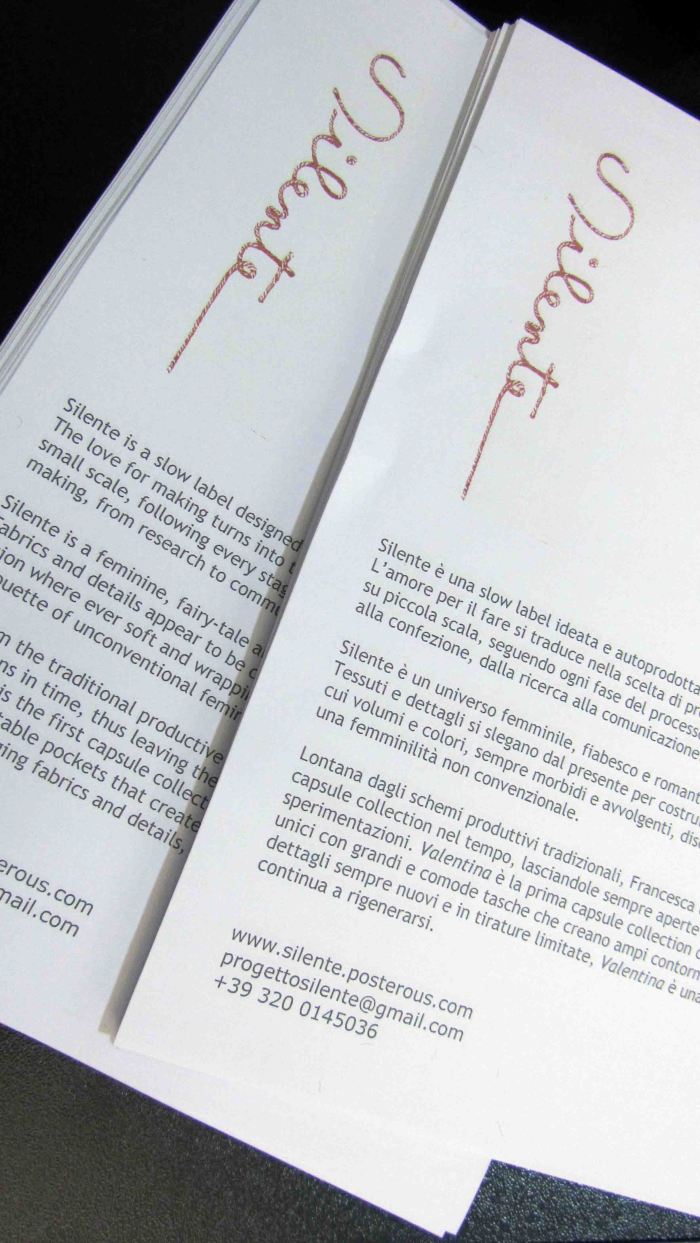 Silente
Silente is a slow label designed
The love for making turns into
small scale, following every
making, from research to
Silente is a feminine, fairy-tale
fabrics and details appear to be
where ever soft and
of unconventional
the traditional productive
in time, thus leaving the
is the first capsule
pockets that create
fabrics and details,
Silente
Silente è una slow label ideata e autoprodotta
L'amore per il fare si traduce nella scelta di
su piccola scala, seguendo ogni fase del
alla confezione, dalla ricerca alla comunicazione
Silente è un universo femminile, fiabesco e
Tessuti e dettagli si slegano dal presente per
cui volumi e colori, sempre morbidi e avvolgenti,
una femminilità non convenzionale.
Lontana dagli schemi produttivi tradizionali, Francesca
capsule collection nel tempo, lasciandole sempre aperte
sperimentazioni. Valentina è la prima capsule collection
unici con grandi e comode tasche che creano ampi
dettagli sempre nuovi e in tirature limitate, Valentina è
continua a rigenerarsi.
www.silente.posterous.com
progettosilente@gmail.com
+39 320 0145036